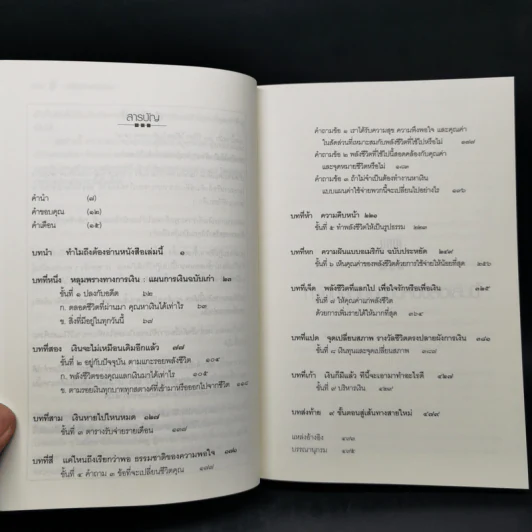 สารบัญ
คำนำ (๗)
คำขอบคุณ (๑๒)
คำเตือน (๑๕)
บทนำ ทำไมถึงต้องอ่านหนังสือเล่มนี้ ๑
บทที่หนึ่ง หลุมพรางทางการเงิน : แผนการเงินฉบับเก่า ๒๓
ขั้นที่ ๑ ปลงกับอดีต ๖๒
ก. ตลอดชีวิตที่ผ่านมา คุณหาเงินได้เท่าไร ๖๓
ข. สิ่งที่มีอยู่ในทุกวันนี้
บทที่สอง เงินจะไม่เหมือนเดิมอีกแล้ว ๗๗
ขั้นที่ ๒ อยู่กับปัจจุบัน ตามแกะรอยพลังชีวิต ๑๐๔
ก. พลังชีวิตของคุณแลกเงินมาได้เท่าไร ๑๐๕
ข. ตามรอยเงินทุกบาททุกสตางค์ที่เข้ามาหรือออกไปจากชีวิต
บทที่สาม เงินหายไปไหนหมด ๑๒๗
ขั้นที่ ๓ ตารางรับจ่ายรายเดือน
บทที่สี่ แค่ไหนถึงเรียกว่าพอ ธรรมชาติของความพอใจ
ขั้นที่ ๔ คำถาม ๓ ข้อที่จะเปลี่ยนชีวิตคุณ
คำถามข้อ ๑ เราได้รับความสุข ความพึงพอใจ และคุณค่า
ในสัดส่วนที่เหมาะสมกับพลังชีวิตที่ใช้ไปหรือไม่
คำถามข้อ ๒ พลังชีวิตที่ใช้ไปนี้สอดคล้องกับคุณค่า
และจุดหมายชีวิตหรือไม่
คำถามข้อ ๓ ถ้าไม่จำเป็นต้องทำงานหาเงิน
แบบแผนค่าใช้จ่ายพวกนี้จะเปลี่ยนไปอย่างไร
บทที่ห้า ความคืบหน้า
ขั้นที่ ๕ ทำพลังชีวิตให้เป็นรูปธรรม
บทที่หก ความฝันแบบอเมริกัน ฉบับประหยัด
ขั้นที่ ๖ เห็นคุณค่าของพลังชีวิตด้วยการใช้จ่ายให้น้อยที่สุด
บทที่เจ็ด พลังชีวิตที่แลกไป เพื่อใจรักหรือเพื่อเงิน
ขั้นที่ ๗ ให้ความคุณค่าแก่พลังชีวิต
ด้วยการเพิ่มรายได้ให้มากที่สุด
บทที่แปด จุดเปลี่ยนสภาพ รางวัลชีวิตตรงปลายผังการเงิน
ขั้นที่ ๘ เงินทุนและจุดเปลี่ยนสภาพ
บทที่เก้า เงินก็มีแล้ว ทีนี้จะเอามาทำอะไรดี ๔๒๗
ขั้นที่ ๙ บริหารเงิน ๔๒๙
บทส่งท้าย ๙ ขั้นตอนสู่เส้นทางสายใหม่
แหล่งอ้างอิง
บรรณานุกรม